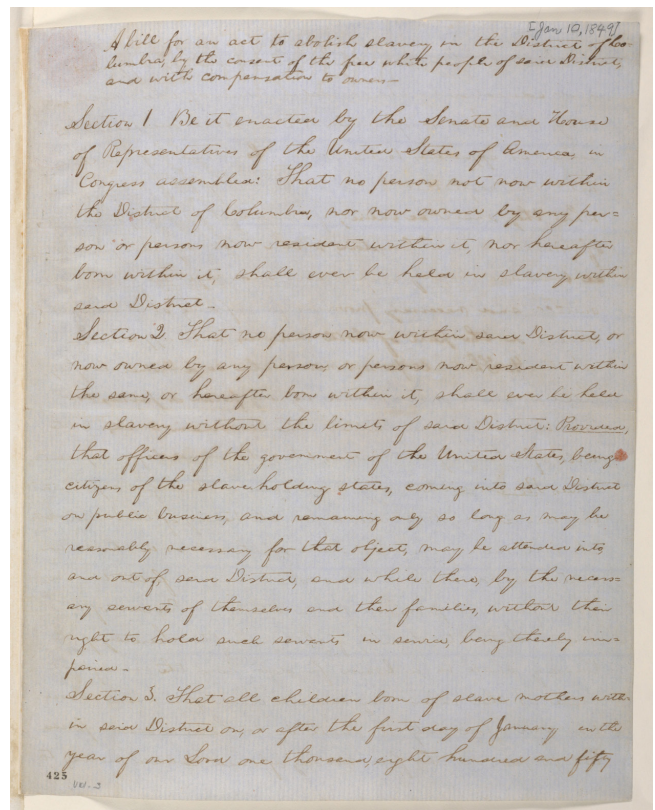 [Jan 10, 1849]
A bill for an act to abolish slavery in the District of Co-
lumbia, by the consent of the free white people of said District,
and with compensation to owners—
Section 1 Be it enacted by the Senate and House
of Representatives of the United States of America, in
Congress assembled: That no person not now within
the District of Columbia, nor now owned by any per=
son or persons now resident within it, nor hereafter
born within it, shall ever be held in slavery within
said District—
Section 2. That no person now within said District, or
now owned by any person, or persons now resident within
the same, or hereafter born within it, shall ever be held
in slavery without the limits of said District: Provided,
that officers of the government of the United States, being
citizens of the slave-holding states, coming into said District
on public business, and remaining only so long as may be
reasonably necessary for that object, may be attended into,
and out of, said District, and while there, by the necess=
ary servants of themselves and their families, without their
right to hold such servants in service, being thereby im=
paired—
Section 3. That all children born of slave mothers with=
in said District on, or after the first day of January in the
year of our Lord one thousand, eight hundred and fifty
425